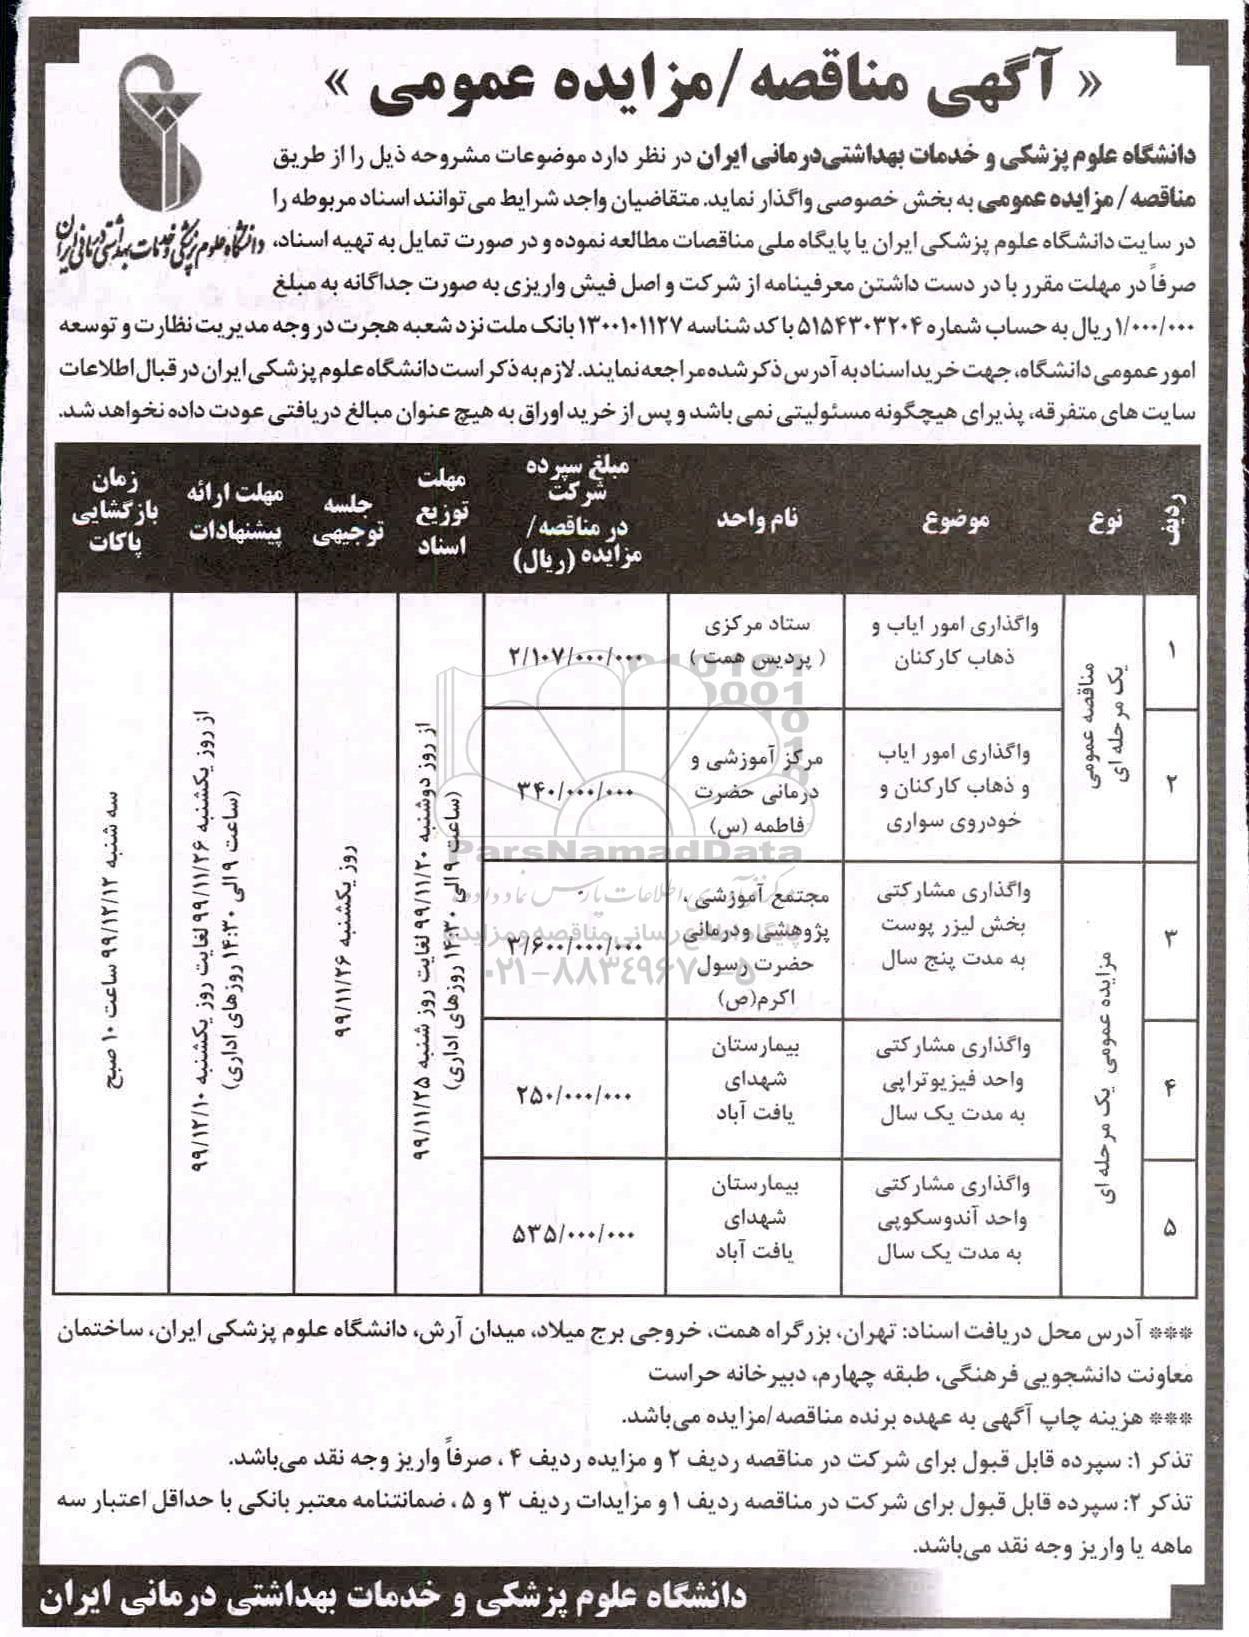 « آگهی مناقصه/مزایده عمومی »
دانشگاه علوم پزشکی و خدمات بهداشتی درمانی ایران
دانشگاه علوم پزشکی و خدمات بهداشتی‌درمانی ایران در نظر دارد موضوعات مشروحه ذیل را از طریق
مناقصه / مزایده عمومی به بخش خصوصی واگذار نماید. متقاضیان واجد شرایط می توانند اسناد مربوطه را
در سایت دانشگاه علوم پزشکی ایران یا پایگاه ملی مناقصات مطالعه نموده و در صورت تمایل به تهیه اسناد،
صرفاً در مهلت مقرر با در دست داشتن معرفینامه از شرکت و اصل فیش واریزی به صورت جداگانه به مبلغ
۱/۰۰۰/۰۰۰ ریال به حساب شماره ۵۱۵۴۳۰۳۲۰۴ با کد شناسه ۱۳۰۰۱۰۱۱۲۷ بانک ملت نزد شعبه هجرت در وجه مدیریت نظارت و توسعه
امور عمومی دانشگاه، جهت خرید اسناد به آدرس ذکر شده مراجعه نمایند. لازم به ذکر است دانشگاه علوم پزشکی ایران در قبال اطلاعات
سایت های متفرقه، پذیرای هیچگونه مسئولیتی نمی باشد و پس از خرید اوراق به هیچ عنوان مبالغ دریافتی عودت داده نخواهد شد.
ردیف
نوع
موضوع
نام واحد
مبلغ سپرده
شرکت
در مناقصه/
مزایده (ریال)
مهلت
توزیع
اسناد
جلسه
توجیهی
مهلت ارائه
پیشنهادات
زمان
بازگشایی
پاکات
۱
مناقصه عمومی
یک مرحله ای
واگذاری امور ایاب و
ذهاب کارکنان
ستاد مرکزی
( پردیس همت )
۲/۱۰۷/۰۰۰/۰۰۰
از روز دوشنبه ۹۹/۱۱/۲۰ لغایت روز شنبه ۹۹/۱۱/۲۵
(ساعت ۹ الی ۱۴:۳۰ روزهای اداری)
روز یکشنبه ۹۹/۱۱/۲۶
از روز یکشنبه ۹۹/۱۱/۲۶ لغایت روز یکشنبه ۹۹/۱۲/۱۰
(ساعت ۹ الی ۱۴:۳۰ روزهای اداری)
سه شنبه ۹۹/۱۲/۱۲ ساعت ۱۰ صبح
۲
واگذاری امور ایاب
و ذهاب کارکنان و
خودروی سواری
مرکز آموزشی و
درمانی حضرت
فاطمه (س)
۳۴۰/۰۰۰/۰۰۰
۳
مزایده عمومی یک مرحله ای
واگذاری مشارکتی
بخش لیزر پوست
به مدت پنج سال
مجتمع آموزشی ،
پژوهشی ودرمانی
حضرت رسول
اکرم(ص)
۳/۶۰۰/۰۰۰/۰۰۰
۴
واگذاری مشارکتی
واحد فیزیوتراپی
به مدت یک سال
بیمارستان
شهدای
یافت آباد
۲۵۰/۰۰۰/۰۰۰
۵
واگذاری مشارکتی
واحد آندوسکوپی
به مدت یک سال
بیمارستان
شهدای
یافت آباد
۵۳۵/۰۰۰/۰۰۰
ParsNamadData
پایگاه اطلاع رسانی مناقصه و مزایده
۰۲۱-۸۸۳۴۹۶۷۰-۵
*** آدرس محل دریافت اسناد: تهران، بزرگراه همت، خروجی برج میلاد، میدان آرش، دانشگاه علوم پزشکی ایران، ساختمان
معاونت دانشجویی فرهنگی، طبقه چهارم، دبیرخانه حراست
*** هزینه چاپ آگهی به عهده برنده مناقصه/مزایده می‌باشد.
تذکر ۱: سپرده قابل قبول برای شرکت در مناقصه ردیف ۲ و مزایده ردیف ۴ ، صرفاً واریز وجه نقد می‌باشد.
تذکر ۲: سپرده قابل قبول برای شرکت در مناقصه ردیف ۱ و مزایدات ردیف ۳ و ۵ ، ضمانتنامه معتبر بانکی با حداقل اعتبار سه
ماهه یا واریز وجه نقد می‌باشد.
دانشگاه علوم پزشکی و خدمات بهداشتی درمانی ایران